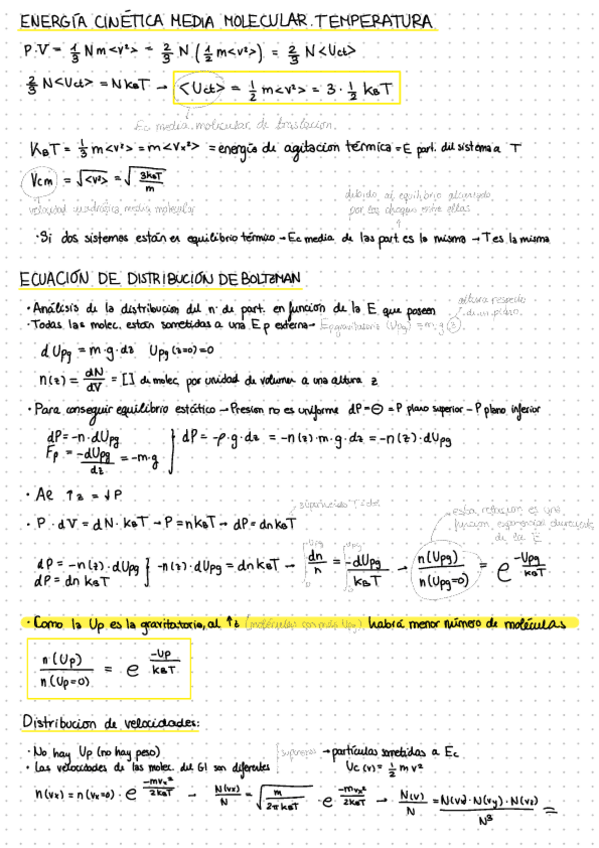 ENERGÍA CINÉTICA MEDIA MOLECULAR. TEMPERATURA
P·V = 1/3 N m <v²> = 2/3 N (1/2 m<v²>) = 2/3 N <Uct>
2/3 N <Uct> = N KBT → <Uct> = 1/2 m <v²> = 3 · 1/2 KBT
Ec media molecular de traslacion.
KBT = 1/3 m <v²> = m <Vx²> = energía de agitación térmica = E part. del sistema a T
Vcm = √<v²> = √(3KBT/m)
velocidad cuadrática media molecular
debido al equilibrio alcanzado
por los choques entre ellas
·Si dos sistemas están en equilibrio térmico → Ec media de las part es la misma → T es la misma
ECUACIÓN DE DISTRIBUCIÓN DE BOLTZMAN
· Análisis de la distribucion del nº de part. en funcion de la E que poseen
altura respecto
· Todas las molec. están sometidas a una Ep externa → Ep gravitatoria (Upg) = m·g·z
de un plano.
dUpg = m·g·dz Upg (z=0) = 0
n(z) = dN/dV = [] de molec, por unidad de volumen a una altura z
· Para conseguir equilibrio estático → Presion no es uniforme dP = ⊖ = P plano superior − P plano inferior
dP = -n·dUpg
Fp = -dUpg/dz = -m·g } dP = -ρ·g·dz = -n(z)·m·g·dz = -n(z)·dUpg
· Al ↑z = ↓P
· P·dV = dN·KBT → P = nKBT → dP = dnKBT
esta relacion es una
funcion exponencial decreciente
de la E
dP = -n(z)·dUpg
dP = dn KBT } -n(z)·dUpg = dn KBT → ∫ dn/n = ∫ -dUpg/KBT → n(Upg)/n(Upg=0) = e^(-Upg/KBT)
· Como la Up es la gravitatoria, al ↑z (moléculas con más Upg) habrá menor número de moléculas
n(Up)/n(Up=0) = e^(-Up/KBT)
Distribucion de velocidades:
· No hay Up (no hay peso) → partículas sometidas a Ec
· Las velocidades de las molec. del GI son diferentes Uc (v) = 1/2 m v²
n(vx) = n(vx=0) · e^(-mvx²/2KBT) → N(vx)/N = √(m/2πKBT) · e^(-mvx²/2KBT) → N(v)/N = N(vx)·N(vy)·N(vz)/N³ =